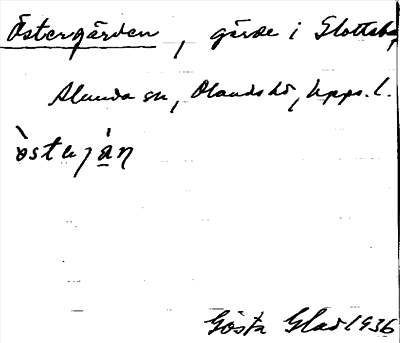 Östergården, gärde i Slottsby,
Alunda sn, Olands hd, Upps. l.
Gösta Glad 1936